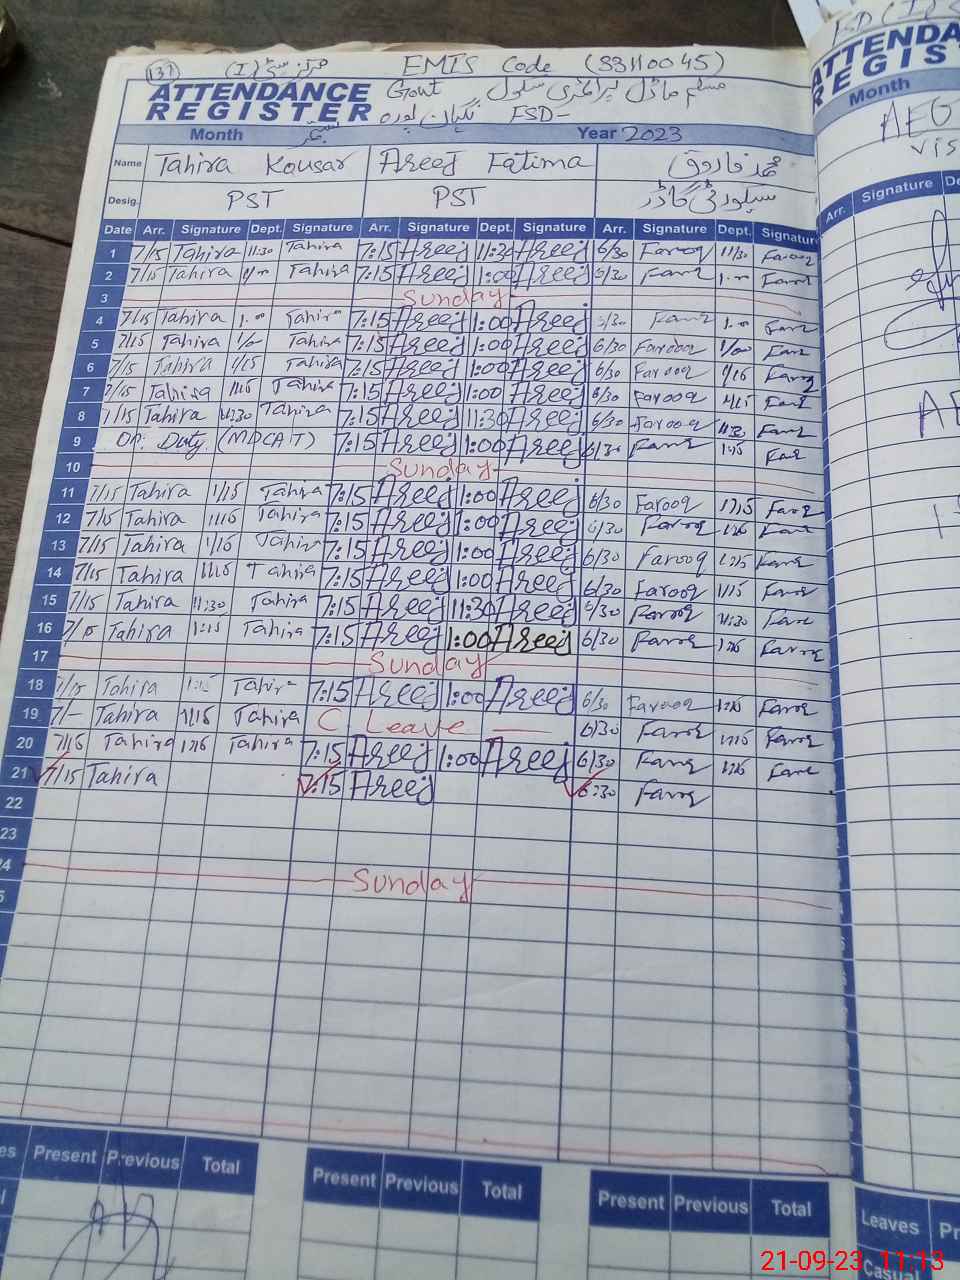 137 مرکز سٹی (I) EMIS Code (33110045)
ATTENDANCE Govt مسلم ماڈل پرائمری سکول
REGISTER نگہبان پورہ FSD-
Month ستمبر Year 2023
Name Tahira Kousar Areej Fatima محمد فاروق
Desig. PST PST سیکورٹی گارڈ
Date Arr. Signature Dept. Signature Arr. Signature Dept. Signature Arr. Signature Dept. Signature
1 7/15 Tahira 11:30 Tahira 7:15 Areej 11:30 Areej 6/30 Farooq 11/30 Farooq
2 7/15 Tahira 1/00 Tahira 7:15 Areej 1:00 Areej 6/30 Farooq 1.00 Farooq
3 Sunday
4 7/15 Tahira 1.00 Tahira 7:15 Areej 1:00 Areej 6/30 Farooq 1.00 Farooq
5 7/15 Tahira 1/00 Tahira 7:15 Areej 1:00 Areej 6/30 Farooq 1/00 Farooq
6 7/15 Tahira 1/15 Tahira 7:15 Areej 1:00 Areej 6/30 Farooq 1/15 Farooq
7 7/15 Tahira 1/15 Tahira 7:15 Areej 1:00 Areej 6/30 Farooq 1/15 Farooq
8 7/15 Tahira 11:30 Tahira 7:15 Areej 11:30 Areej 6/30 Farooq 11:30 Farooq
9 On Duty (MDCAT) 7:15 Areej 1:00 Areej 6/30 Farooq 1:15 Farooq
10 Sunday
11 7/15 Tahira 1/15 Tahira 7:15 Areej 1:00 Areej 6/30 Farooq 1:15 Farooq
12 7/15 Tahira 1:15 Tahira 7:15 Areej 1:00 Areej 6/30 Farooq 1:15 Farooq
13 7/15 Tahira 1/15 Tahira 7:15 Areej 1:00 Areej 6/30 Farooq 1:15 Farooq
14 7/15 Tahira 1:15 Tahira 7:15 Areej 1:00 Areej 6/30 Farooq 1/15 Farooq
15 7/15 Tahira 11:30 Tahira 7:15 Areej 11:30 Areej 6/30 Farooq 11:30 Farooq
16 7/15 Tahira 1:15 Tahira 7:15 Areej 1:00 Areej 6/30 Farooq 1:15 Farooq
17 Sunday
18 7/15 Tahira 1:15 Tahira 7:15 Areej 1:00 Areej 6/30 Farooq 1:15 Farooq
19 7/- Tahira 1:15 Tahira C Leave 6/30 Farooq 1:15 Farooq
20 7/15 Tahira 1:15 Tahira 7:15 Areej 1:00 Areej 6/30 Farooq 1:15 Farooq
21 7/15 Tahira 7:15 Areej 6:30 Farooq
22
23
24 Sunday
Present Previous Total Present Previous Total Present Previous Total
ATTENDA
REGIS
Month
AEO
Arr. Signature
Leaves
Casual
21-09-23 11:13